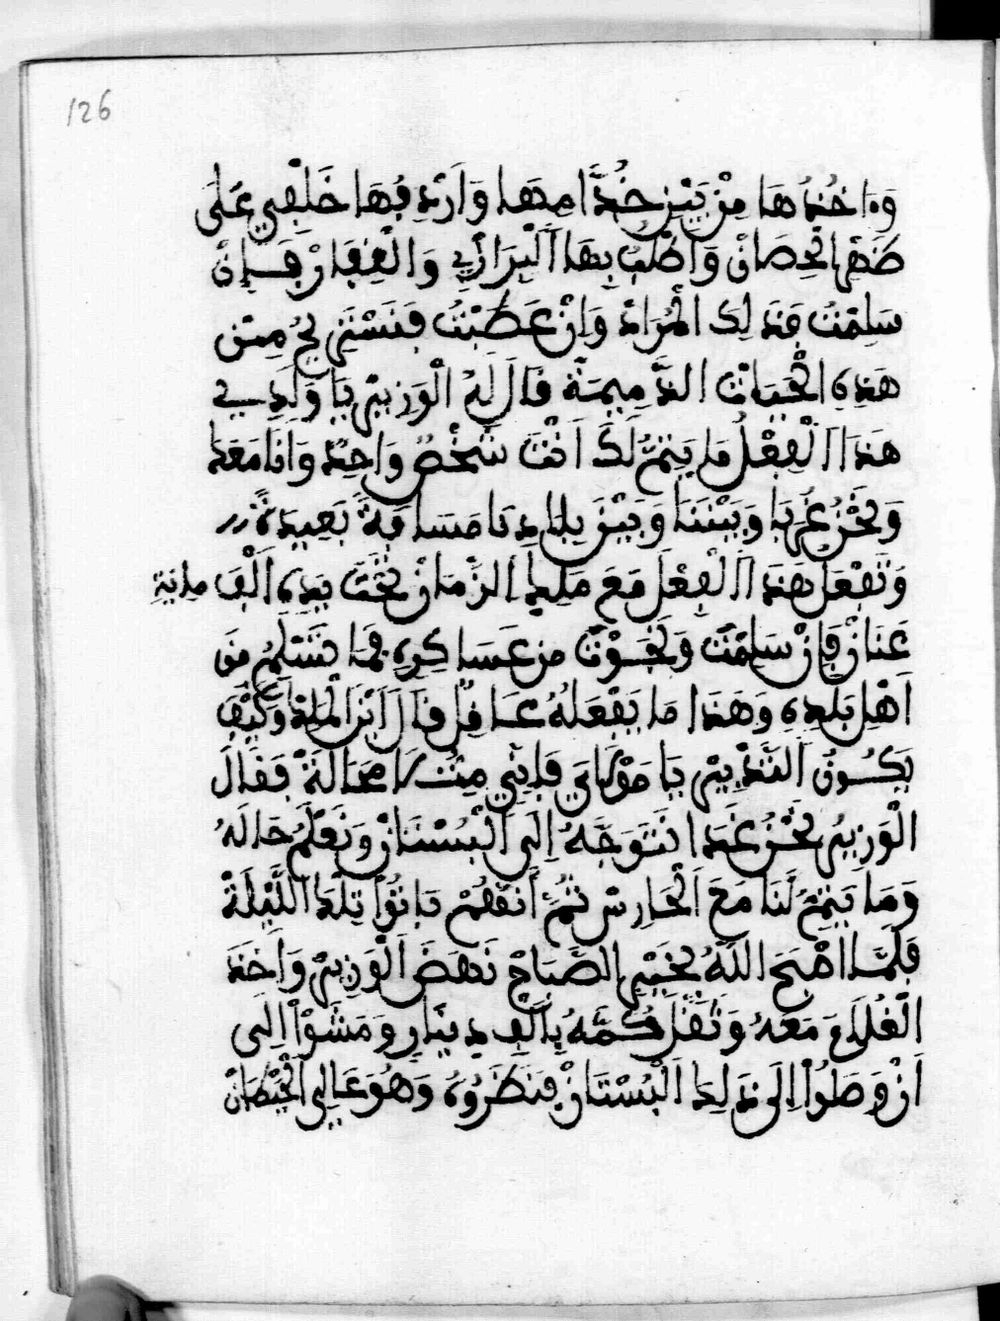 126
وَءاخُذُهَا مِنْ بَيْنِ خُدَّامِهَا وَأَرْدِفُهَا خَلْفِي عَلَى
ظَهْرِ الْحِصَانْ وَأَطْلُبُ بِهَا الْبَرَارِي وَالْقِفَارْ فَإِنْ
سَلِمْتُ فَذَلِكَ الْمُرَادْ وَإِنْ عَطَبْتُ فَنَسْتَرِيحُ مِنْ
هَذِهِ الْحَيَاتْ الذَّمِيمَة قَالَ لَهُ الْوَزِيرْ يَا وَلَدِي
هَذَا الْفِعْلُ مَا يَتِمُّ لَكَ أَنْتَ شَخْصٌ وَاحِدْ وَأَنَا مَعَكَ
وَنَحْنُ غُرَبَا وَبَيْنَنَا وَبَيْنَ بِلَادِنَا مَسَافَةً بَعِيدَةً
وَتَفْعَلْ هَذَا الْفِعْلَ مَعَ مَلِكِ الزَّمَانْ تَحْتَ يَدِهِ أَلْفَ مِائَةِ
عَنَانْ فَإِنْ سَلِمْتَ وَنَجَوْتَ مِنْ عَسَاكِرِهِ فَمَا تَسْلَمُ مِنْ
أَهْلِ بَلَدِهِ وَهَذَا مَا يَفْعَلُهُ عَاقِلْ قَالَ ابْنُ الْمَلِكْ وَكَيْفَ
يَكُونُ التَّدْبِيرْ يَا مَوْلَايَ فَإِنِّي مِتُّ لَا مَحَالَةْ فَقَالَ
الْوَزِيرُ نَحْنُ غَدَا نَتَوَجَّهُ إِلَى الْبُسْتَانْ وَنَعْلَمُ حَالَهُ
وَمَا يَتِمُّ لَنَا مَعَ الْحَارِسْ ثُمَّ أَنَّهُمْ بَاتُوا تِلْكَ اللَّيْلَةْ
فَلَمَّا أَصْبَحَ اللَّهُ بِخَيْرِ الصَّبَاحْ نَهَضَ الْوَزِيرْ وَأَخَذَ
الْغُلَامَ مَعَهُ وَنَقَلَ كُمَّهُ بِأَلْفِ دِينَارِ وَمَشَوْا إِلَى
أَنْ وَصَلُوا إِلَى ذَلِكَ الْبُسْتَانْ فَنَظَرُوهُ وَهُوَ عَالِي الْحِيطَانْ